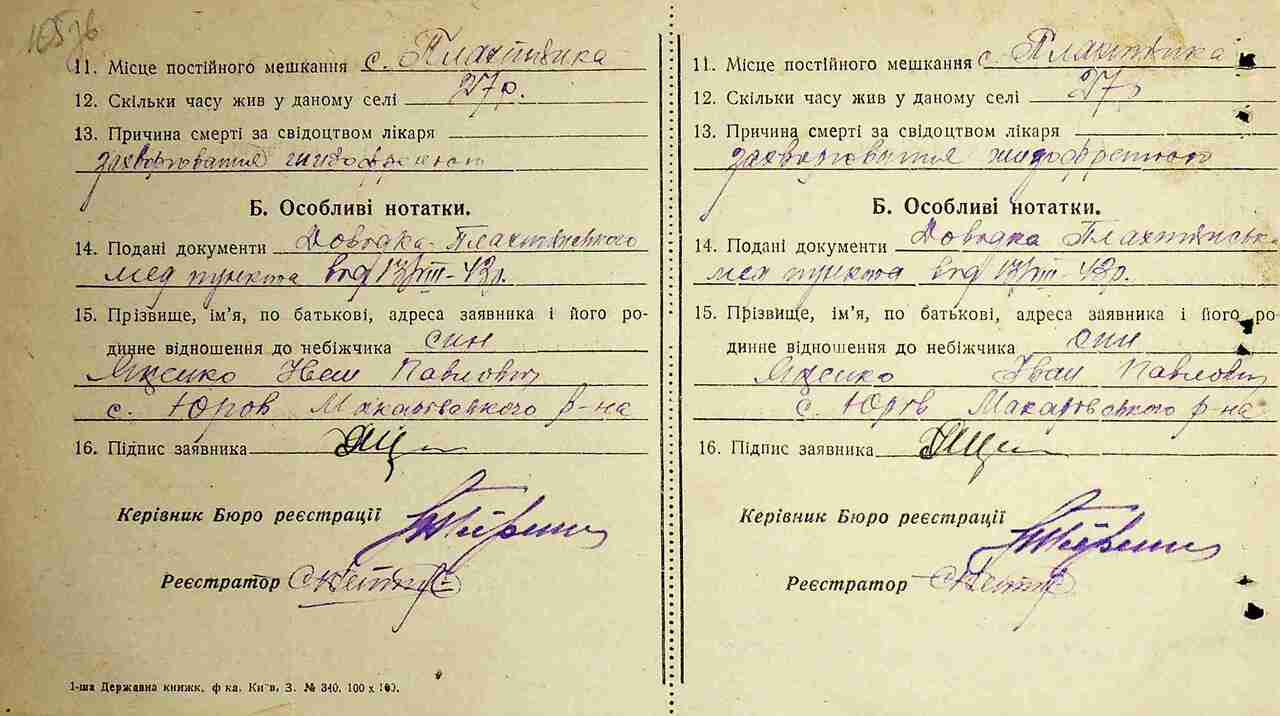 11. Місце постійного мешкання с. Плахтянка
12. Скільки часу жив у даному селі 27 р.
13. Причина смерті за свідоцтвом лікаря
захворювання
Б. Особливі нотатки.
14. Подані документи Довідка Плахтянського
мед пункта від 13/VIII-43 р.
15. Прізвище, ім'я, по батькові, адреса заявника і його ро-
динне відношення до небіжчика син
Яценко Іван Павлович
с. Юров Макаровського р-на
16. Підпис заявника Яце
Керівник Бюро реєстрації
Реєстратор
1-ша Державна книжк. ф-ка. Київ, З. № 340. 100 x 100.
11. Місце постійного мешкання с. Плахтянка
12. Скільки часу жив у даному селі 27 р
13. Причина смерті за свідоцтвом лікаря
захворювання
Б. Особливі нотатки.
14. Подані документи Довідка Плахтянськ
мед пункта від 13/VIII-43 р.
15. Прізвище, ім'я, по батькові, адреса заявника і його ро-
динне відношення до небіжчика син
Яценко Іван Павлович
с. Юров Макаровського р-на
16. Підпис заявника Яце
Керівник Бюро реєстрації
Реєстратор